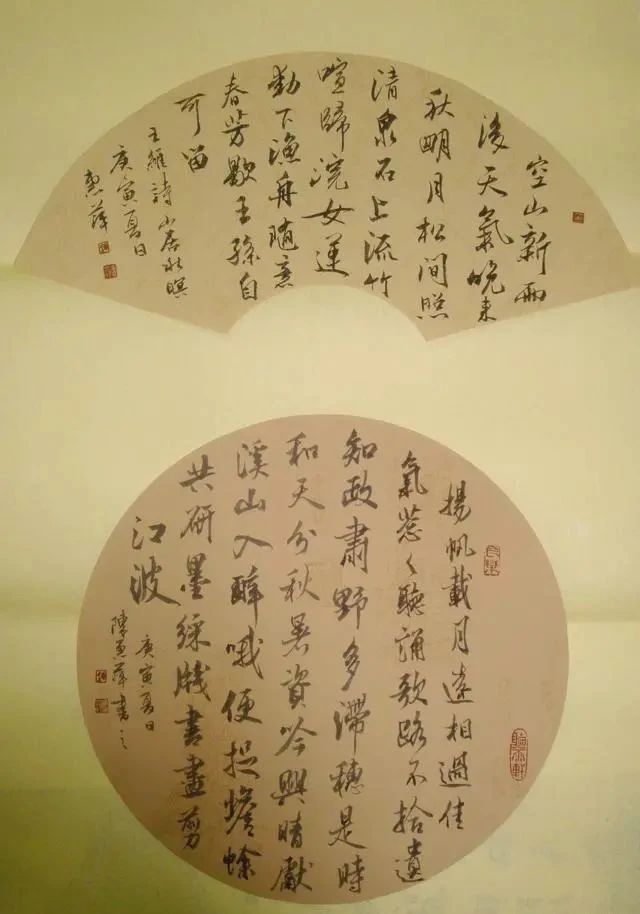 空山新雨
後天氣晚来
秋明月松间照
清泉石上流竹
喧歸浣女蓮
動下漁舟随意
春芳歇王孫自
可留
王維詩山居秋暝
庚寅夏日
惠萍
揚帆載月遠相過佳
氣葱々聽誦歌路不拾遺
知政肅野多滯穗是時
和天分秋暑資吟興晴獻
溪山入醉哦便捉蟾蜍
共研墨綵牋書盡剪
江波
庚寅夏日
陳惠萍書之